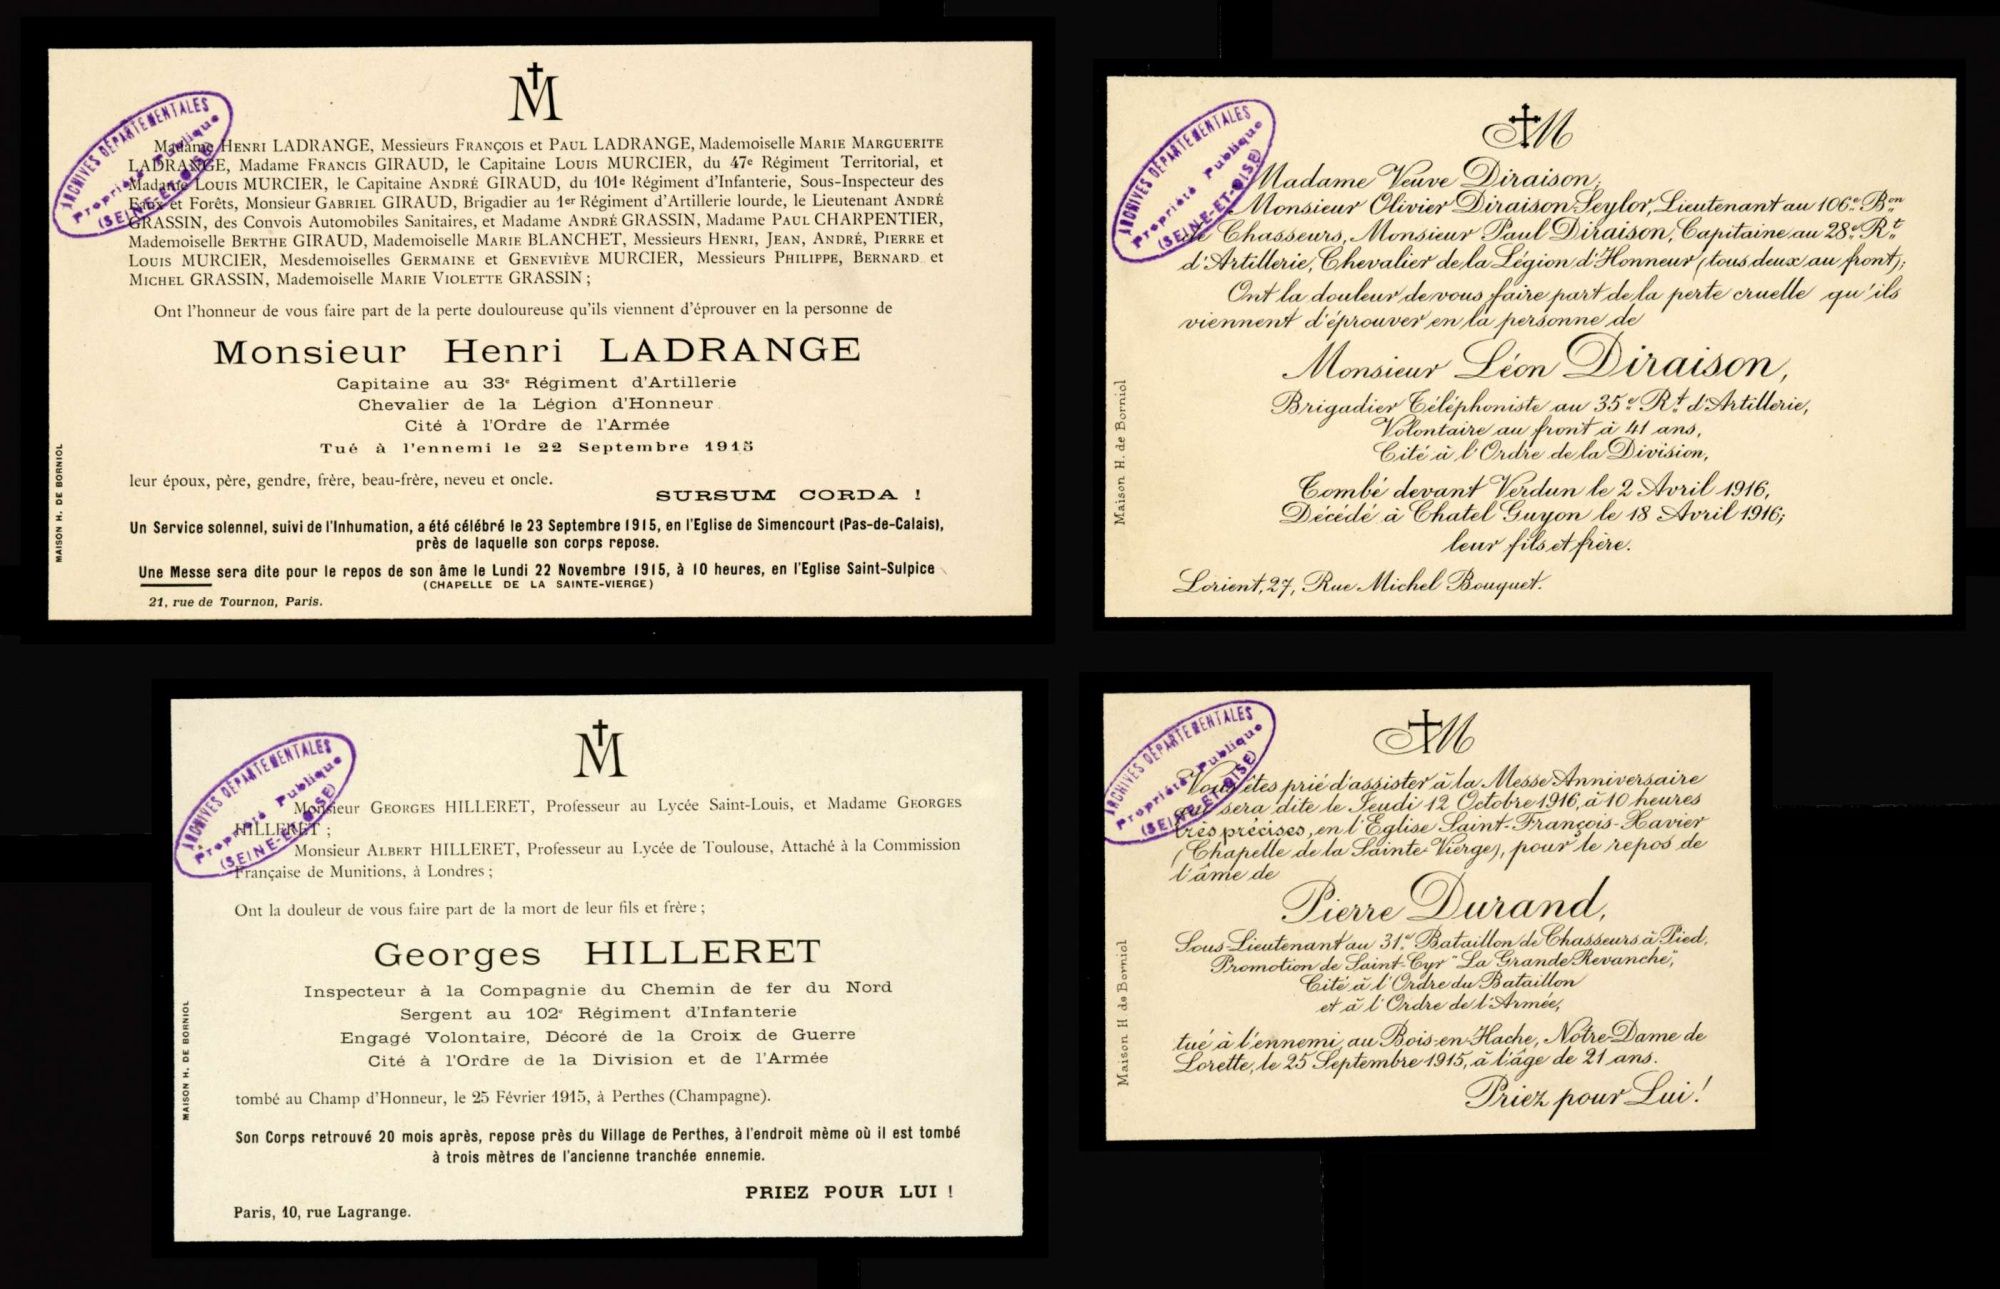 M
ARCHIVES DÉPARTEMENTALES
Propriété Publique
(SEINE-ET-OISE)
Madame Henri LADRANGE, Messieurs François et Paul LADRANGE, Mademoiselle Marie Marguerite
LADRANGE, Madame Francis GIRAUD, le Capitaine Louis MURCIER, du 47e Régiment Territorial, et
Madame Louis MURCIER, le Capitaine André GIRAUD, du 101e Régiment d'Infanterie, Sous-Inspecteur des
Eaux et Forêts, Monsieur Gabriel GIRAUD, Brigadier au 1er Régiment d'Artillerie lourde, le Lieutenant André
GRASSIN, des Convois Automobiles Sanitaires, et Madame André GRASSIN, Madame Paul CHARPENTIER,
Mademoiselle Berthe GIRAUD, Mademoiselle Marie BLANCHET, Messieurs Henri, Jean, André, Pierre et
Louis MURCIER, Mesdemoiselles Germaine et Geneviève MURCIER, Messieurs Philippe, Bernard et
Michel GRASSIN, Mademoiselle Marie Violette GRASSIN ;
Ont l'honneur de vous faire part de la perte douloureuse qu'ils viennent d'éprouver en la personne de
Monsieur Henri LADRANGE
Capitaine au 33e Régiment d'Artillerie
Chevalier de la Légion d'Honneur
Cité à l'Ordre de l'Armée
Tué à l'ennemi le 22 Septembre 1915
leur époux, père, gendre, frère, beau-frère, neveu et oncle.
SURSUM CORDA !
Un Service solennel, suivi de l'Inhumation, a été célébré le 23 Septembre 1915, en l'Eglise de Simencourt (Pas-de-Calais),
près de laquelle son corps repose.
Une Messe sera dite pour le repos de son âme le Lundi 22 Novembre 1915, à 10 heures, en l'Eglise Saint-Sulpice
(CHAPELLE DE LA SAINTE-VIERGE)
21, rue de Tournon, Paris.
MAISON H. DE BORNIOL
M
ARCHIVES DÉPARTEMENTALES
Propriété Publique
(SEINE-ET-OISE)
Madame Veuve Diraison,
Monsieur Olivier Diraison-Seylor, Lieutenant au 106e Bon
de Chasseurs, Monsieur Paul Diraison, Capitaine au 28e Rt
d'Artillerie, Chevalier de la Légion d'Honneur (tous deux au front);
Ont la douleur de vous faire part de la perte cruelle qu'ils
viennent d'éprouver en la personne de
Monsieur Léon Diraison,
Brigadier Téléphoniste au 35e Rt d'Artillerie,
Volontaire au front à 41 ans,
Cité à l'Ordre de la Division,
Tombé devant Verdun le 2 Avril 1916,
Décédé à Chatel Guyon le 18 Avril 1916;
leur fils et frère.
Lorient, 27, Rue Michel Bouquet.
Maison H. de Borniol
M
ARCHIVES DÉPARTEMENTALES
Propriété Publique
(SEINE-ET-OISE)
Monsieur Georges HILLERET, Professeur au Lycée Saint-Louis, et Madame Georges
HILLERET ;
Monsieur Albert HILLERET, Professeur au Lycée de Toulouse, Attaché à la Commission
Française de Munitions, à Londres ;
Ont la douleur de vous faire part de la mort de leur fils et frère ;
Georges HILLERET
Inspecteur à la Compagnie du Chemin de fer du Nord
Sergent au 102e Régiment d'Infanterie
Engagé Volontaire, Décoré de la Croix de Guerre
Cité à l'Ordre de la Division et de l'Armée
tombé au Champ d'Honneur, le 25 Février 1915, à Perthes (Champagne).
Son Corps retrouvé 20 mois après, repose près du Village de Perthes, à l'endroit mème où il est tombé
à trois mètres de l'ancienne tranchée ennemie.
PRIEZ POUR LUI !
Paris, 10, rue Lagrange.
MAISON H. DE BORNIOL
M
ARCHIVES DÉPARTEMENTALES
Propriété Publique
(SEINE-ET-OISE)
Vous êtes prié d'assister à la Messe Anniversaire
qui sera dite le Jeudi 12 Octobre 1916, à 10 heures
très précises, en l'Eglise Saint-François-Xavier
(Chapelle de la Sainte-Vierge), pour le repos de
l'âme de
Pierre Durand,
Sous-Lieutenant au 31e Bataillon de Chasseurs à Pied,
Promotion de Saint-Cyr "La Grande Revanche",
Cité à l'Ordre du Bataillon
et à l'Ordre de l'Armée,
tué à l'ennemi, au Bois-en-Hache, Notre-Dame de
Lorette, le 25 Septembre 1915, à l'âge de 21 ans.
Priez pour Lui !
Maison H de Borniol